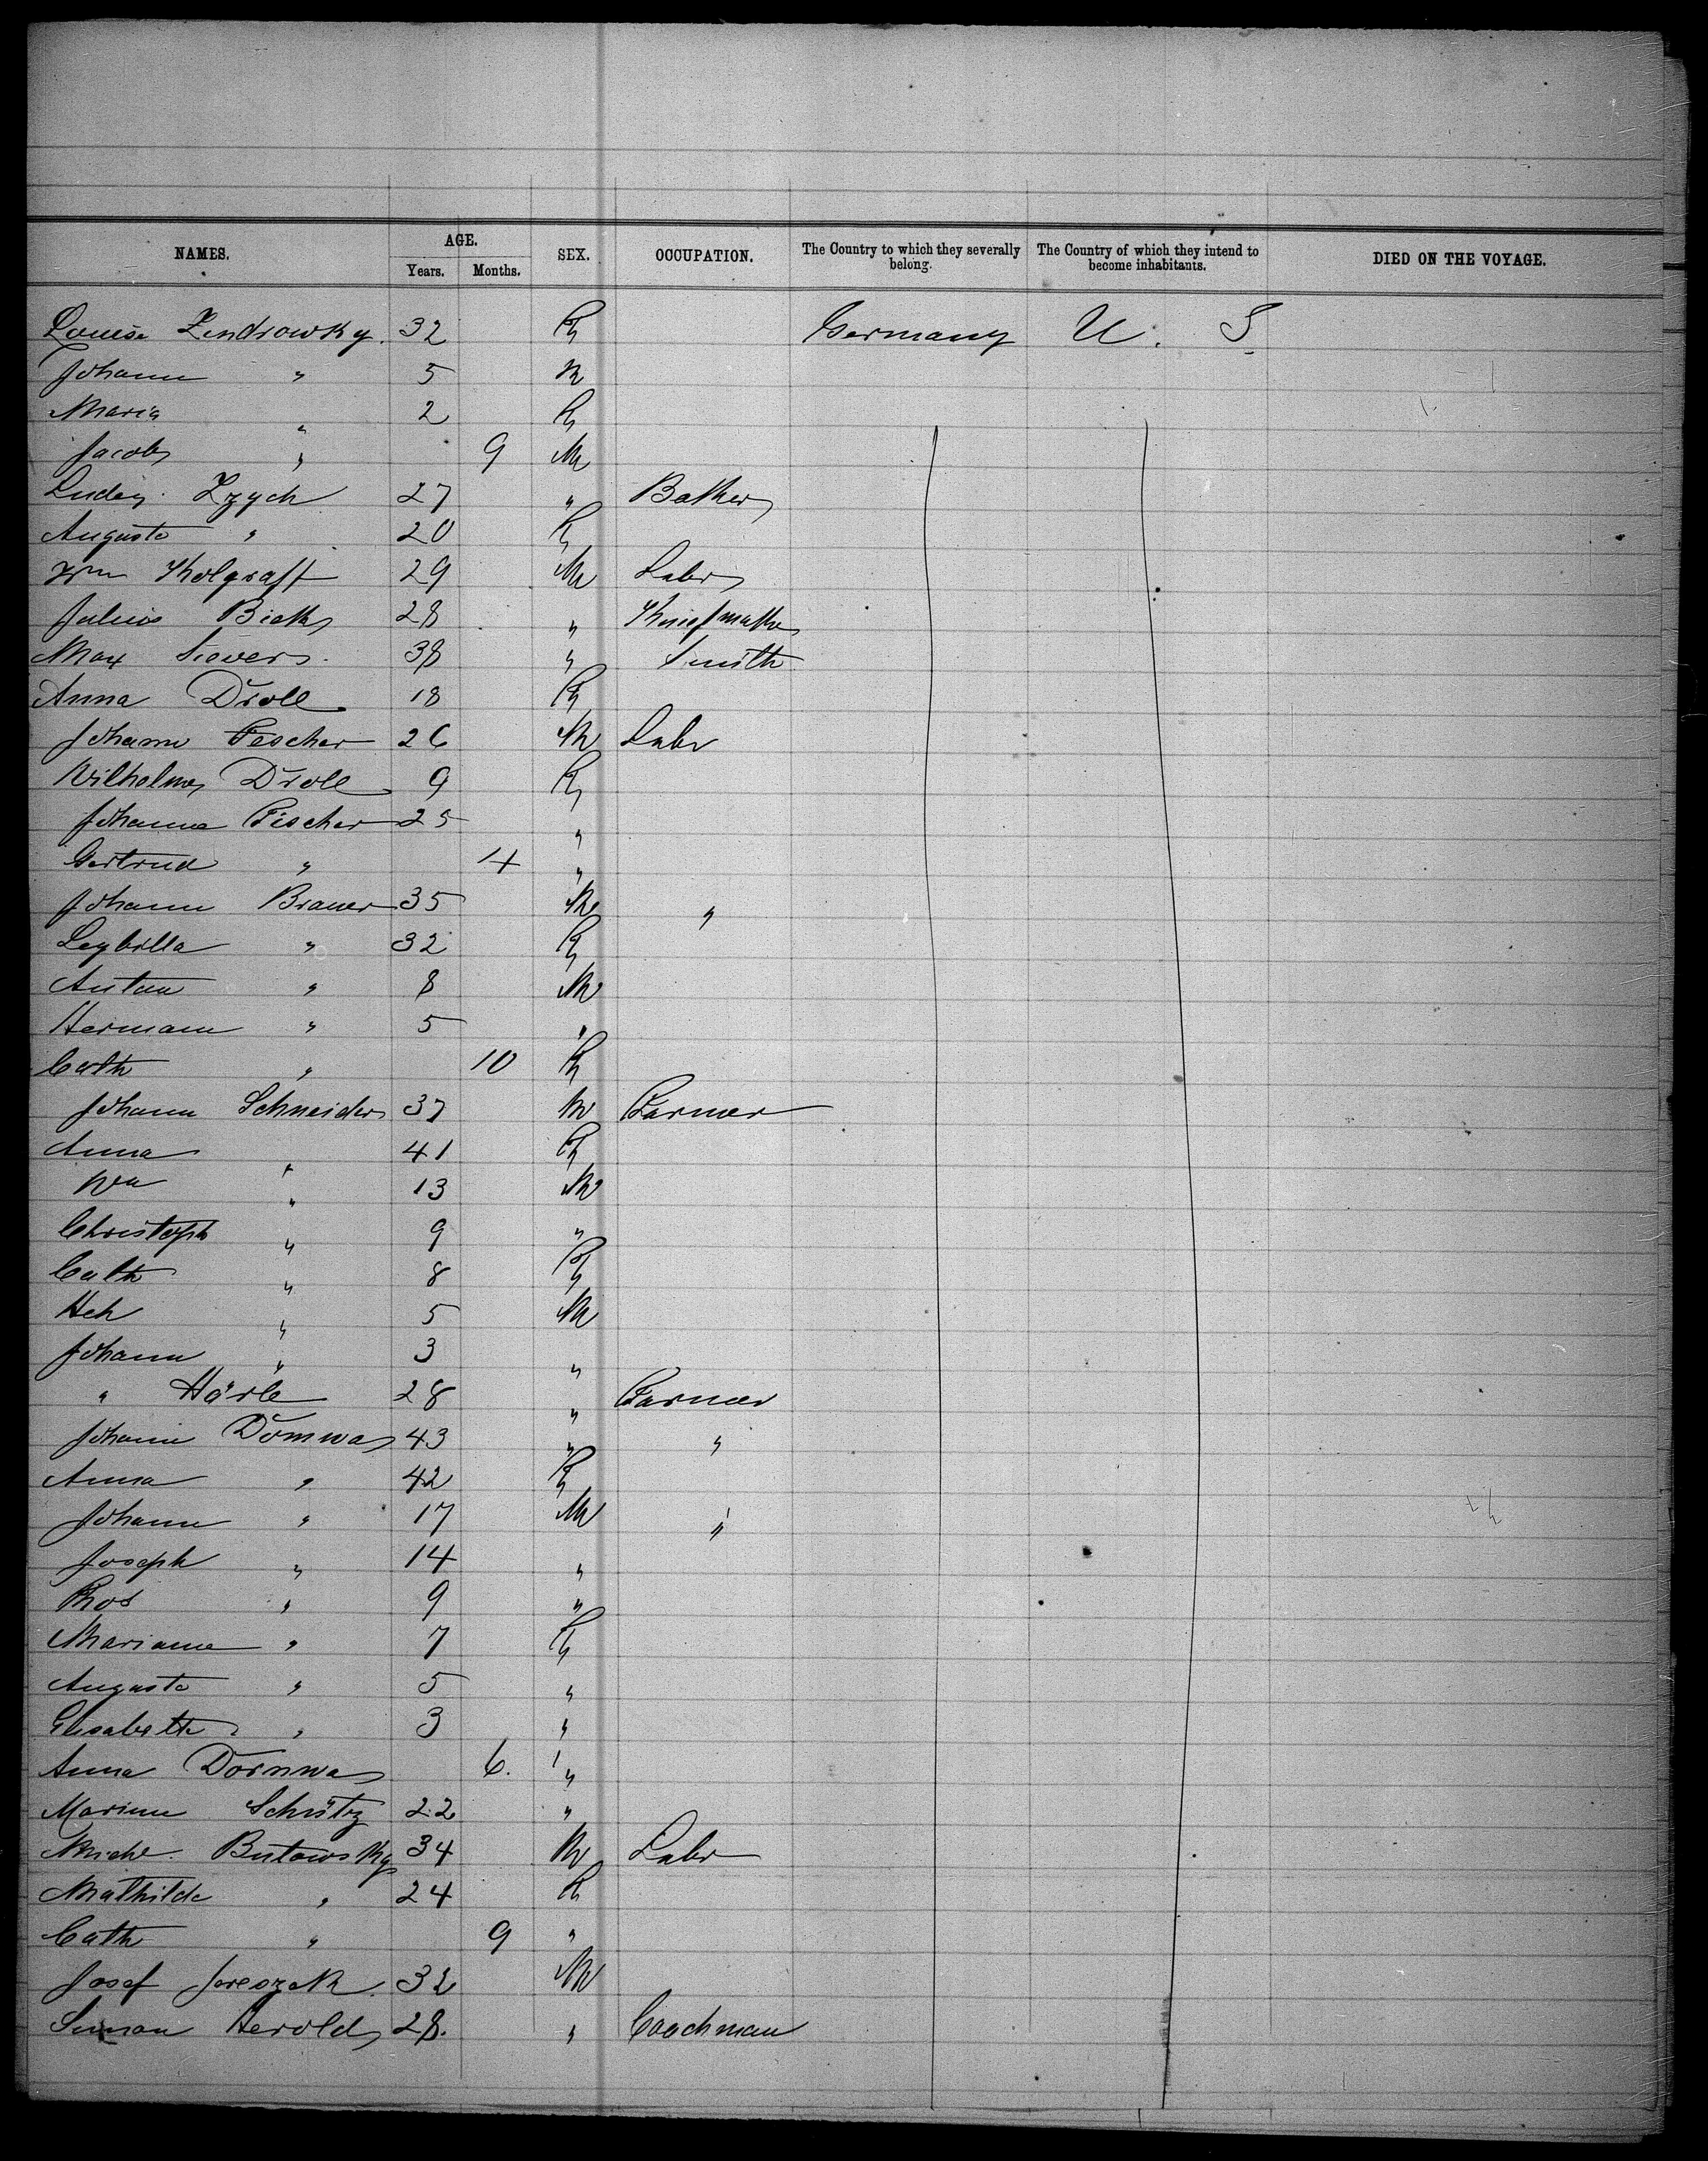 NAMES. AGE. SEX. OCCUPATION. The Country to which they severally belong. The Country of which they intend to become inhabitants. DIED ON THE VOYAGE.
Years. Months.
Louise Zendrowsky. 32 F Germany U. S
Johann " 5 M
Maria " 2 F
Jacob " 9 M
Ludwig Zzych 27 "
Auguste " 20 F
Wm Kolgraff 29 M Labr
Julius 28 "
Max Sievers. 38 " Smith
Anna Droll 18 F
Johann Fischer 26 M Labr
Wilhelm Droll 9 F
Johanna Fischer 25 "
Gertrud " 4 "
Johann Brauer 35 M "
Seybilla " 32 F
Anton " 8 M
Hermann " 5 "
Cath " 10 F
Johann Schneider 37 M Farmer
Anna " 41 F
Wm " 13 M
Christoph " 9 "
Cath " 8 F
Hch " 5 M
Johann " 3 "
" Härle 28 " Farmer
Johann Dornwas 43 " "
Anna " 42 F
Johann " 17 M "
Joseph " 14 "
Ros " 9 "
Marianna " 7 F
Auguste " 5 "
Elisabeth " 3 "
Anna Dornwas 6. "
Mariann Schütz 22 "
Michl. Butowsky 34 M Labr
Mathilde " 24 F
Cath " 9 "
Josef Joreszek. 32 M
Simon Herold 28. " Coachman